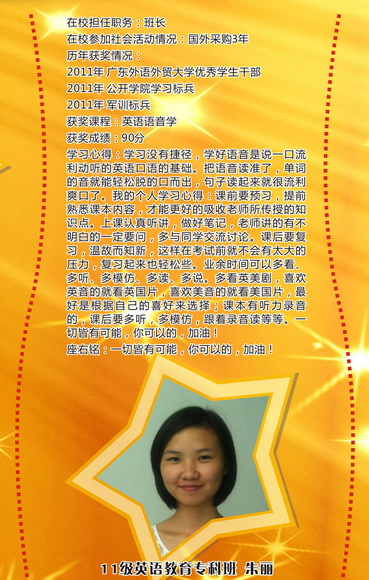 在校担任职务：班长
在校参加社会活动情况：国外采购3年
历年获奖情况：
2011年 广东外语外贸大学优秀学生干部
2011年 公开学院学习标兵
2011年 军训标兵
获奖课程：英语语音学
获奖成绩：90分
学习心得：学习没有捷径，学好语音是说一口流
利动听的英语口语的基础。把语音读准了，单词
的音就能轻松脱的口而出，句子读起来就很流利
爽口了。我的个人学习心得：课前要预习，提前
熟悉课本内容，才能更好的吸收老师所传授的知
识点。上课认真听讲，做好笔记，老师讲的有不
明白的一定要问，多与同学交流讨论。课后要复
习，温故而知新，这样在考试前就不会有太大的
压力，复习起来也轻松些。业余时间可以多看、
多听、多模仿、多读、多说。多看英美剧，喜欢
英音的就看英国片，喜欢美音的就看美国片，最
好是根据自己的喜好来选择；课本有听力录音
的，课后要多听，多模仿，跟着录音读等等。一
切皆有可能，你可以的，加油！
座右铭：一切皆有可能，你可以的，加油！
11级英语教育专科班 朱丽